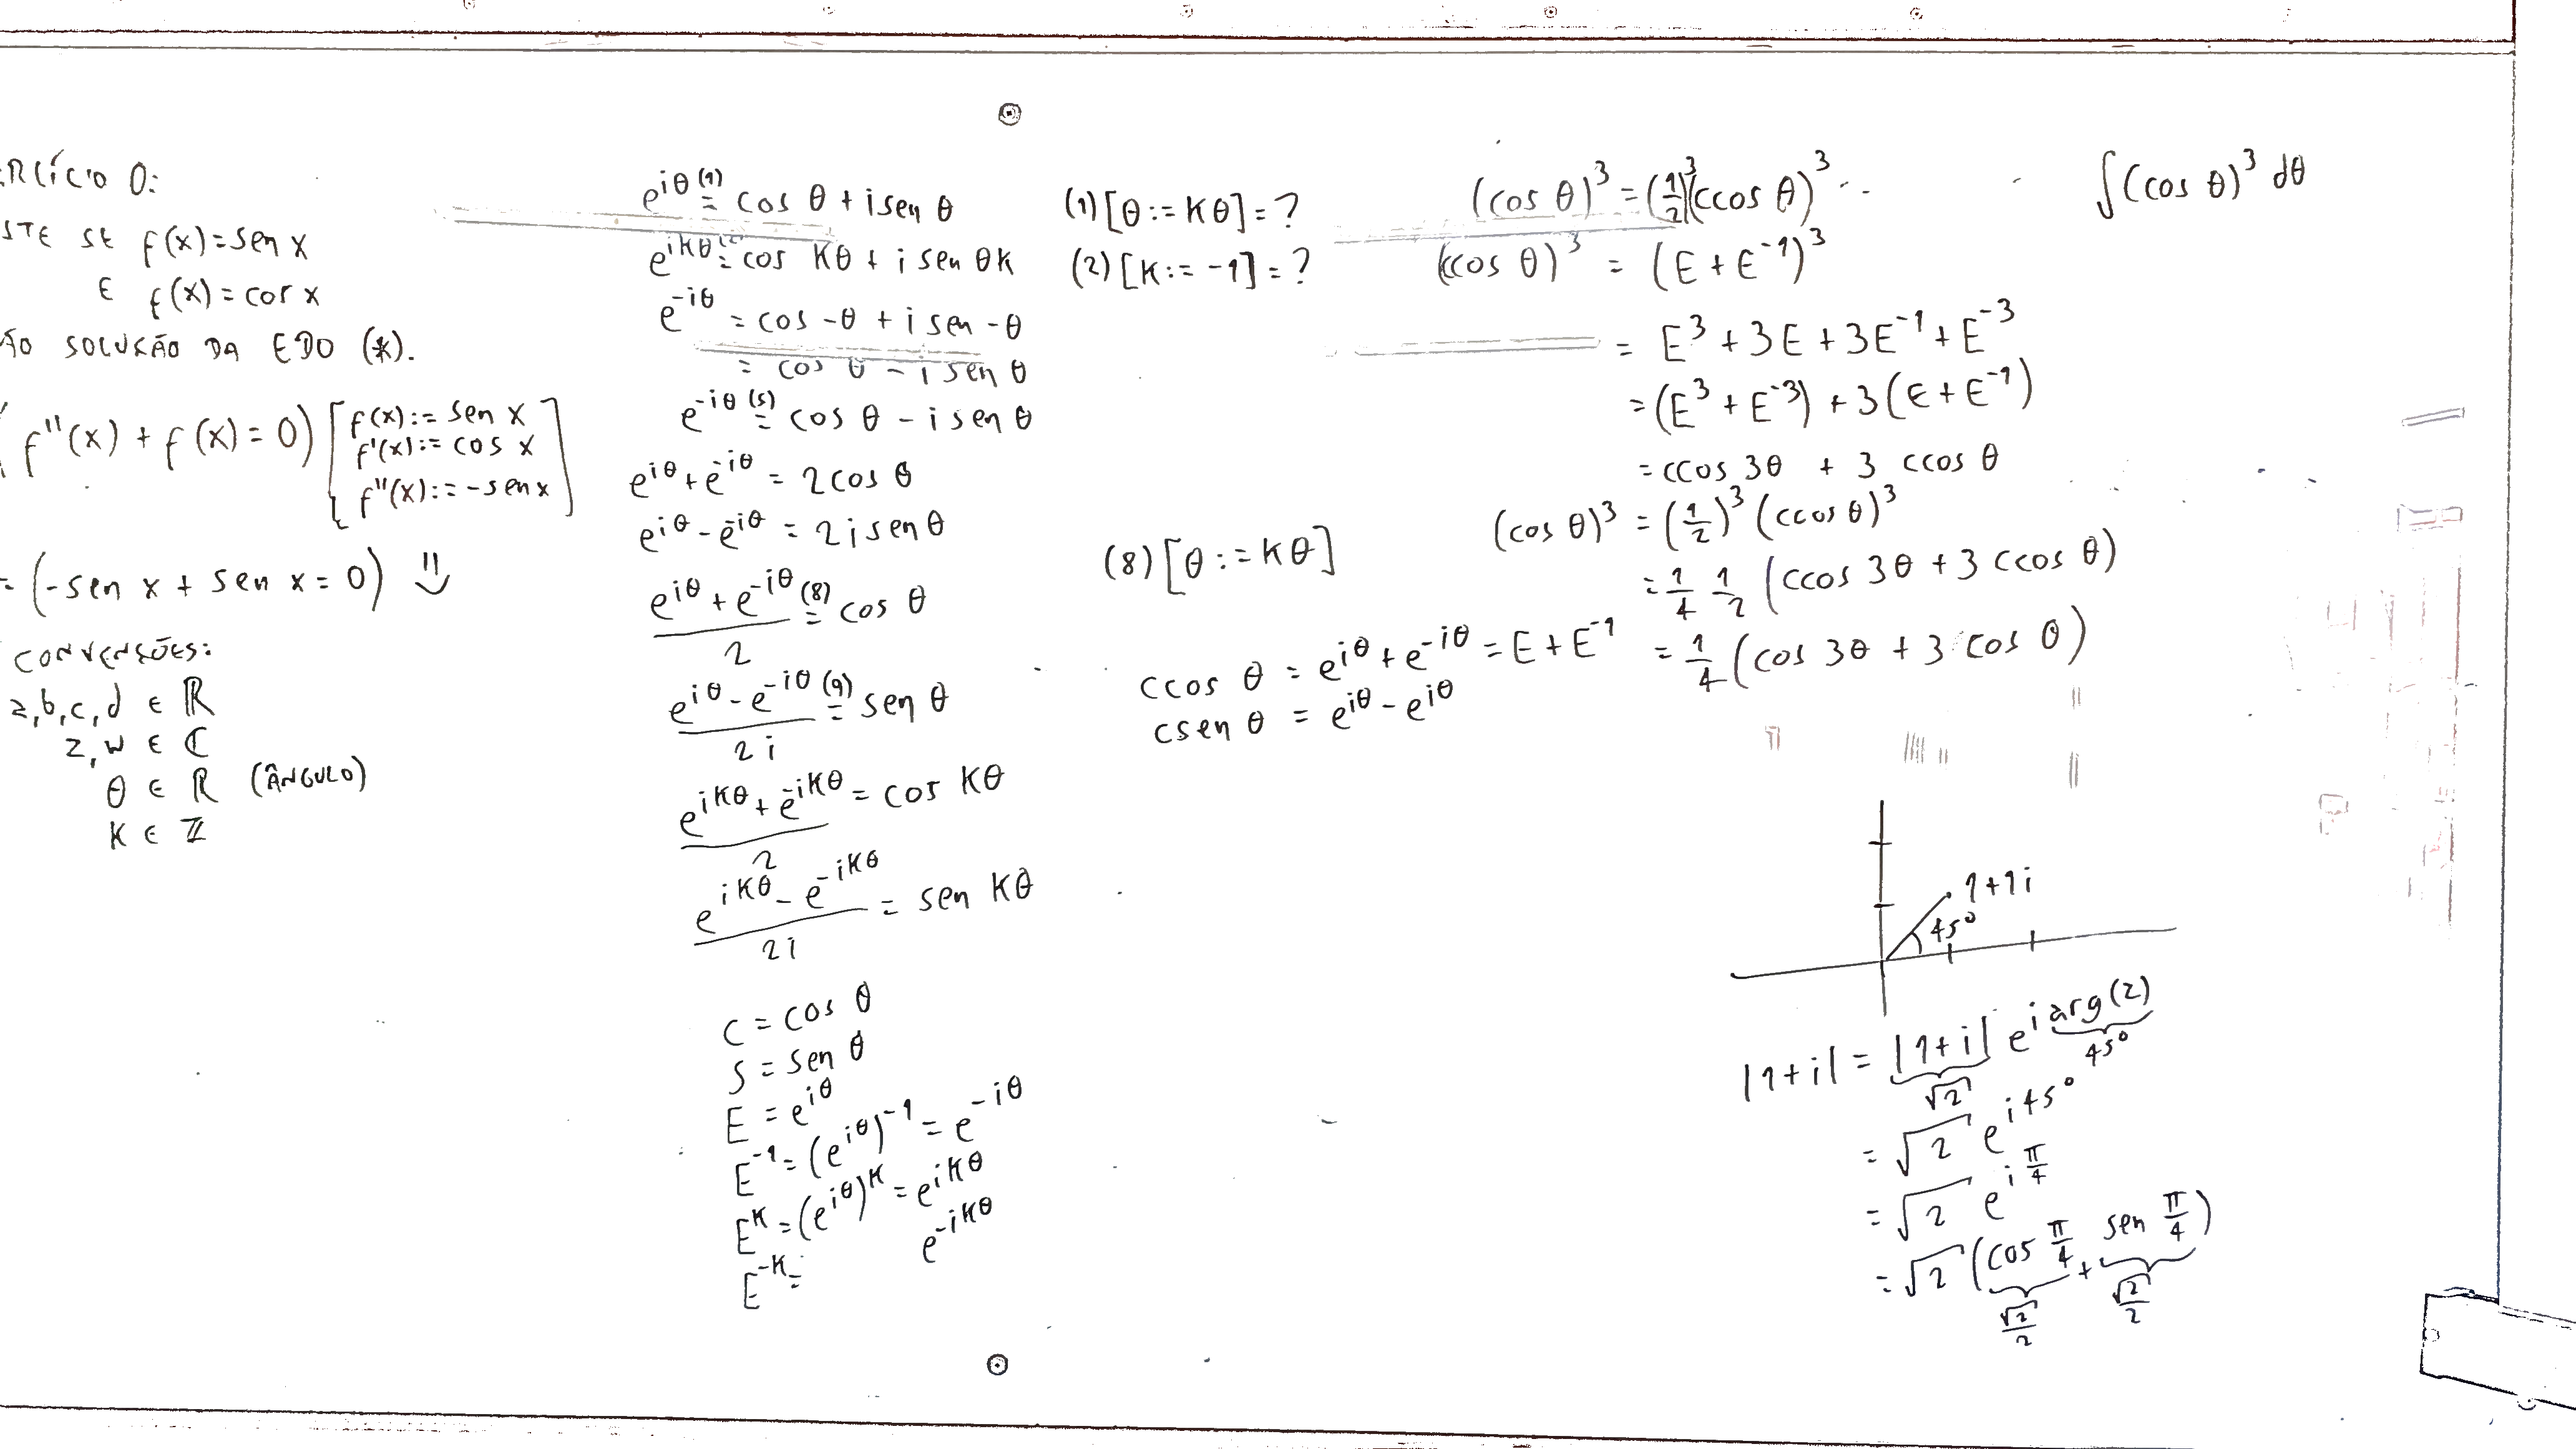 RCÍCIO 0:
STE SE f(x)=sen x
E f(x)=cos x
ÃO SOLUÇÃO DA EDO (*).
(f''(x) + f(x) = 0) [f(x) := sen x
f'(x) := cos x
f''(x) := -sen x]
= (-sen x + sen x = 0) :)
CONVENÇÕES:
a,b,c,d ∈ ℝ
z,w ∈ ℂ
θ ∈ ℝ (ÂNGULO)
k ∈ ℤ
e^{iθ} (1)= cos θ + i sen θ
e^{ikθ} (2)= cos kθ + i sen θk
e^{-iθ} = cos -θ + i sen -θ
= cos θ - i sen θ
e^{-iθ} (5)= cos θ - i sen θ
e^{iθ} + e^{-iθ} = 2 cos θ
e^{iθ} - e^{-iθ} = 2 i sen θ
(e^{iθ} + e^{-iθ})/2 (8)= cos θ
(e^{iθ} - e^{-iθ})/2i (9)= sen θ
(e^{ikθ} + e^{-ikθ})/2 = cos kθ
(e^{ikθ} - e^{-ikθ})/2i = sen kθ
c = cos θ
s = sen θ
E = e^{iθ}
E^{-1} = (e^{iθ})^{-1} = e^{-iθ}
E^k = (e^{iθ})^k = e^{ikθ}
E^{-k} = e^{-ikθ}
(1) [θ := kθ] = ?
(2) [k := -1] = ?
(8) [θ := kθ]
ccos θ = e^{iθ} + e^{-iθ} = E + E^{-1}
csen θ = e^{iθ} - e^{iθ}
(cos θ)^3 = (1/2)^3 (ccos θ)^3 ..
(ccos θ)^3 = (E + E^{-1})^3
= E^3 + 3E + 3E^{-1} + E^{-3}
= (E^3 + E^{-3}) + 3(E + E^{-1})
= ccos 3θ + 3 ccos θ
(cos θ)^3 = (1/2)^3 (ccos θ)^3
= 1/4 1/2 (ccos 3θ + 3 ccos θ)
= 1/4 (cos 3θ + 3 cos θ)
∫(cos θ)^3 dθ
1+1i
45°
|1+i| = |1+i| e^{i arg(z)}
√2 45°
= √2 e^{i45°}
= √2 e^{iπ/4}
= √2 (cos π/4 + sen π/4)
√2/2 √2/2